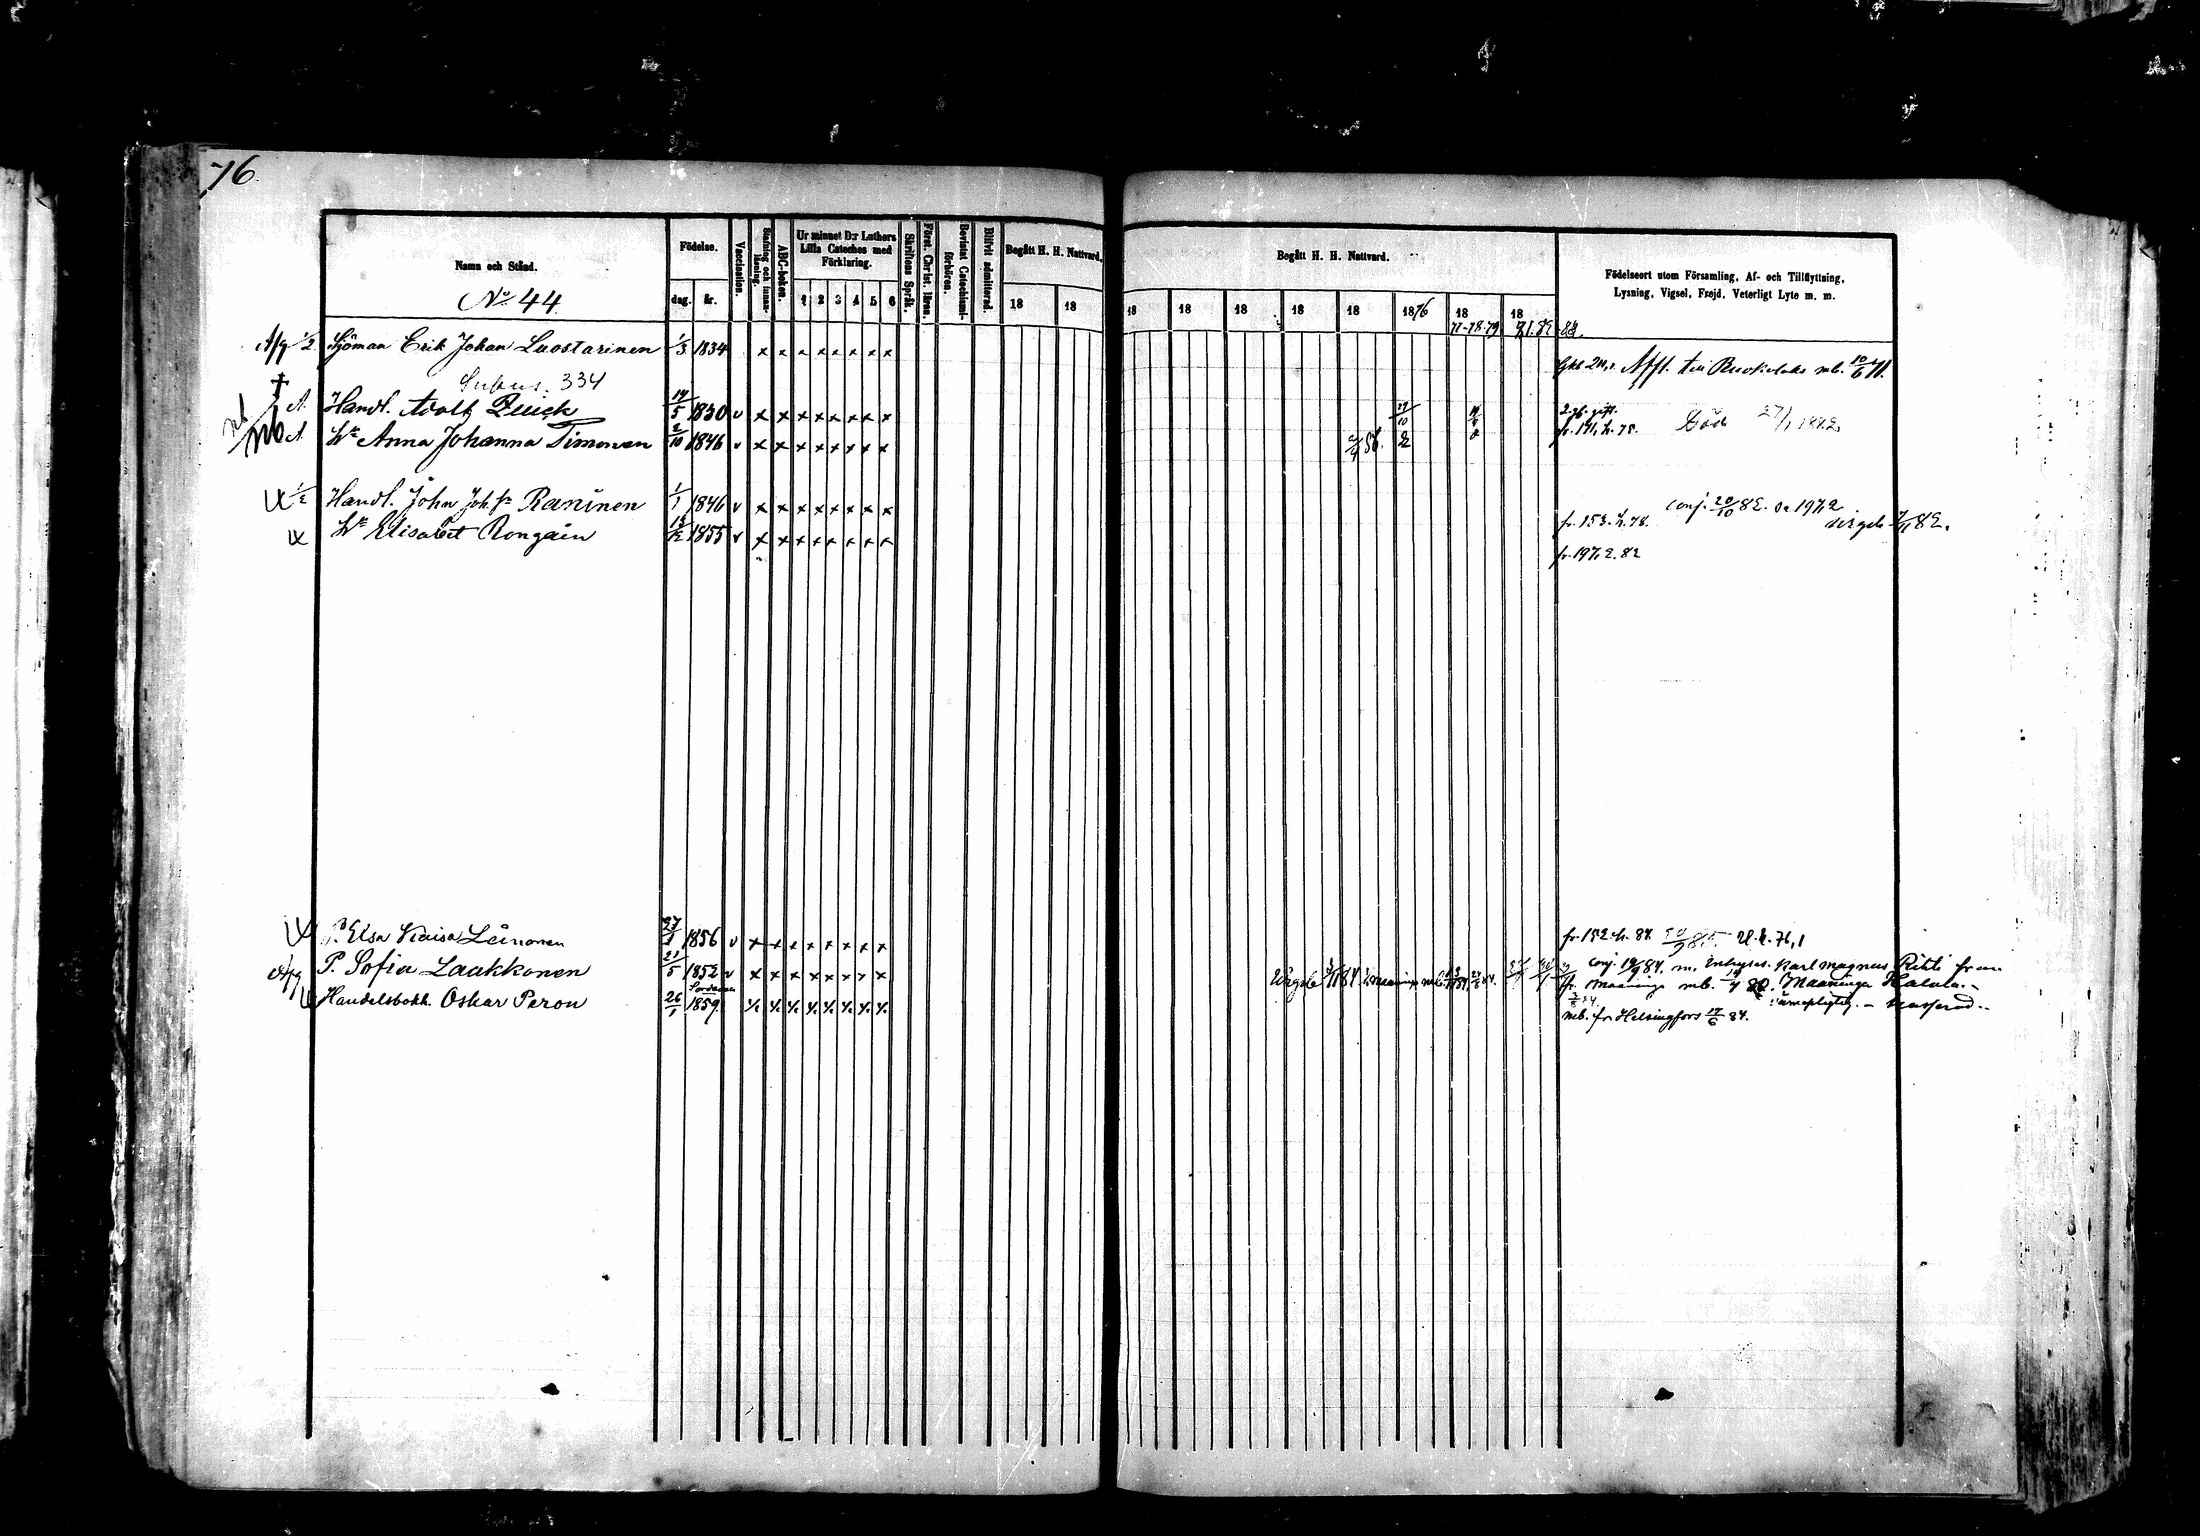 76.
Namn och Stånd.
No 44.
Födelse.
dag.
år.
Vaccination.
Stafning och innan-läsning.
ABC-boken.
Ur minnet D:r Luthers
Lilla Cateches med
Förklaring.
1 2 3 4 5 6
Skriftens Språk.
Först. Christ. läran.
Bevistat Catechismi-förhören.
Blifvit admitterad.
Begått H. H. Nattvard.
18 18
Begått H. H. Nattvard.
18 18 18 18 18 1876 18 18
77-78-79
Födelseort utom Församling, Af- och Tillflyttning,
Lysning, Vigsel, Frejd, Veterligt Lyte m. m.
Sjöman Erik Johan Luostarinen 1/3 1834 x x x x x x x x
Affl. till Ruokolaks mb. 10/6 71.
334
Handl. Adolf 19/5 1830 v x x x x x x x x 29/10
Död 27/1 1882
Hu Anna Johanna Timonen 2/10 1846 v x x x x x x x x
fr. 171, h. 78.
Handl. John Joh.sn Raninen 1/1 1846 v x x x x x x x x
fr. 153. h. 78. conj. 20/10 82. se 197,2
Hu Elisabet Rongain 1855 v x x x x x x x x
fr. 197, 2. 82
P. Elsa Kaisa Leinonen 1856 v x x x x x x x x
fr. 152. h. 84
P. Sofia Laakkonen 21/5 1852 v x x x x x x x x
conj. 19/9 84. m. Inhyses. Karl Magnus Rihti från
fr. Maaninga mb. Maaninga
Handelsbokh. Oskar Peron 26/1 1859
mb. fr Helsingfors 17/6 84.